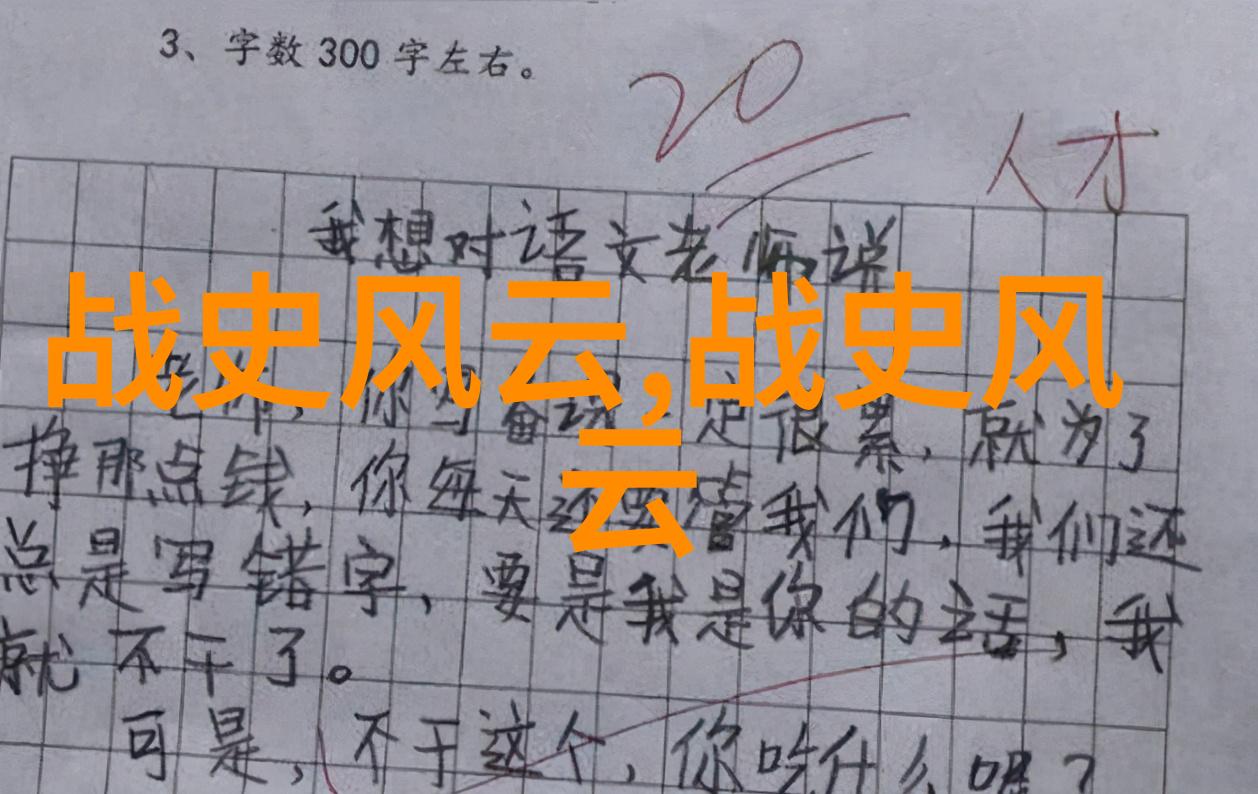 3、字数 300 字左右。
20
人才
我想对语文老师说
战史风云,战史风
云
老师,你写备课一定很累,就为了
挣那点钱,你每天还要管我们,我们还
总是写错字,要是我是你的话,我
就不干了。
可是,不干这个,你吃什么呢?